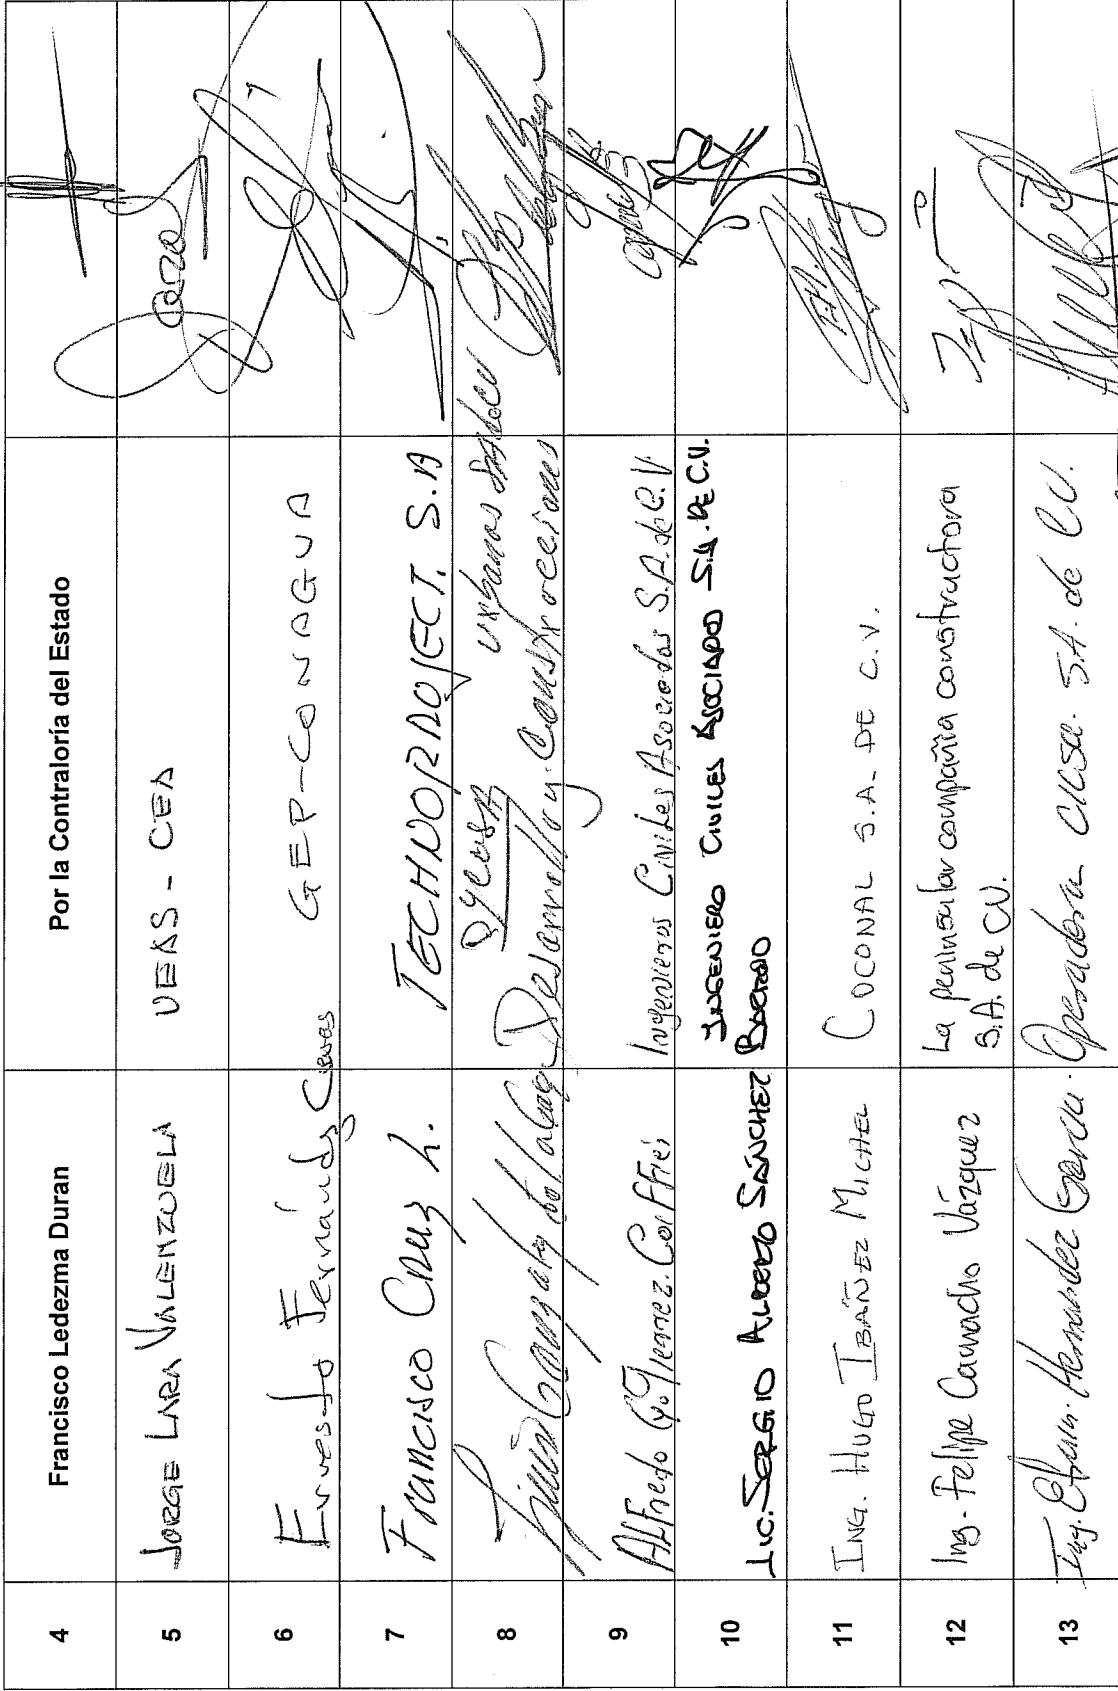 4 Francisco Ledezma Duran Por la Contraloría del Estado
5 JORGE LARA VALENZUELA UEAS - CEA
6 Ernesto Fernández Cuevas GEP-CONAGUA
7 Francisco Cruz L. TECHNOPROJECT. S.A
8 DYCUSA urbanos
Desarrollo y Construcciones
9 ALFredo Ingenieros Civiles Asociados S.A. de C.V
10 LIC. SERGIO ALBERTO SÁNCHEZ INGENIERO CIVILES ASOCIADOS S.A. DE C.V.
11 ING. HUGO IBÁÑEZ MICHEL COCONAL S.A. DE C.V.
12 Ing. Felipe Camacho Vázquez La peninsular compañía constructora
S.A. de CV.
13 Ing. Efraín Hernández García. Operadora CICSA. S.A. de C.V.